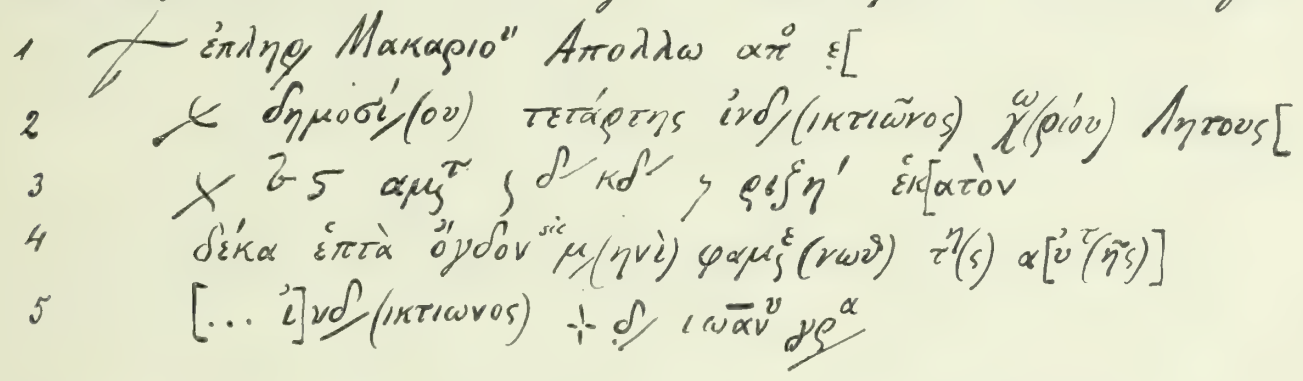 1 ἐπληρ/ Μακαριοʺ Απολλω απὸ ε̣[
2 χ δημοσί/(ου) τετάρτης ἰνδ/(ικτιῶνος) χω(ρίου) Λητους[
3 χ αμςτ ϛ δ/ κδ/ ριζη′ ἑκ[ατὸν
4 δέκα ἑπτὰ ὄγδον sic μ/(ηνὶ) φαμςε(νωθ) τη(ς) α[ὐτ(ῆς)]
5 [... ἰ]νδ/(ικτιωνος) + δ̣/ ιωανυ γρα